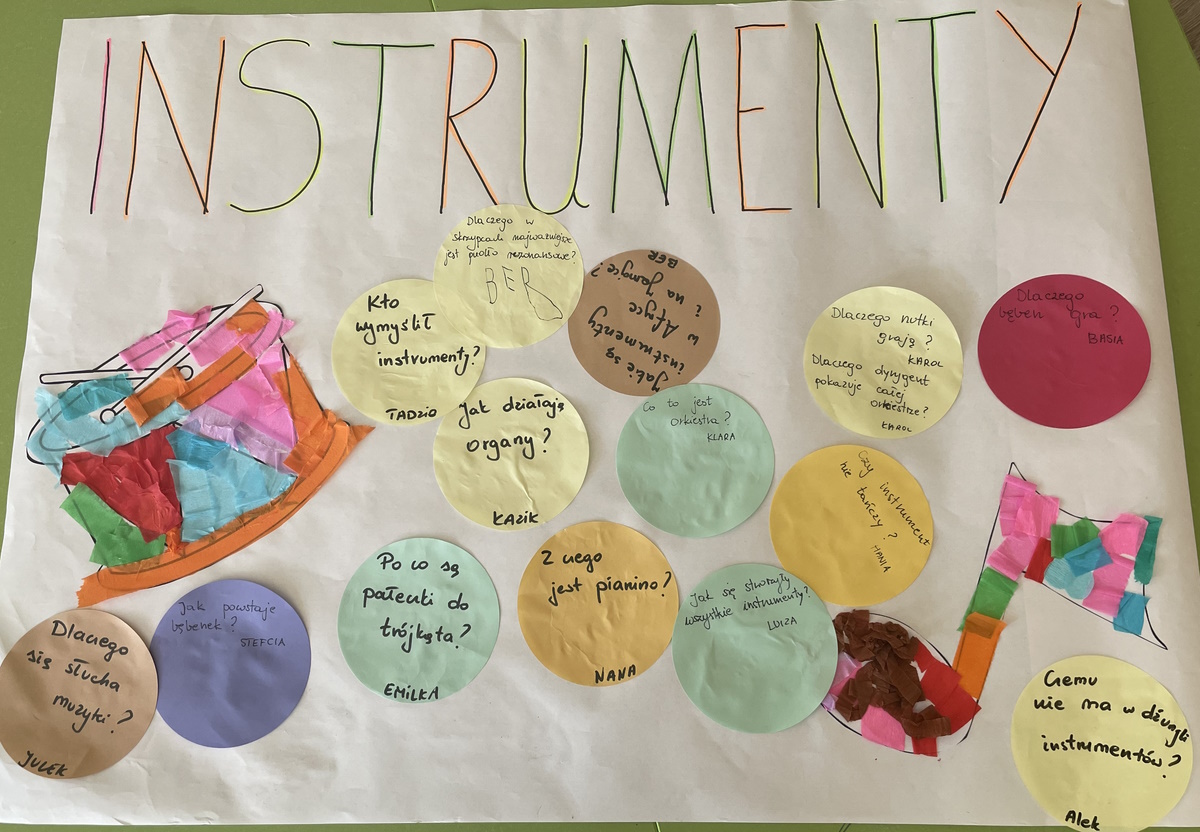 INSTRUMENTY
Dlaczego w
skrzypcach najważniejsze
jest pudło rezonansowe?
BER
Kto
wymyślił
instrumenty?
TADZIO
Jakie są
instrumenty
w Afryce
i na Jamajce?
BER
Jak działają
organy?
KAZIK
Co to jest
orkiestra?
KLARA
Dlaczego nutki
grają?
KAROL
Dlaczego dyrygent
pokazuje całej
orkiestrze?
KAROL
Dlaczego
bęben gra?
BASIA
Czy instrument
nie tańczy?
HANIA
Dlaczego
się słucha
muzyki?
JULEK
Jak powstaje
bębenek?
STEFCIA
Po co są
pałeczki do
trójkąta?
EMILKA
Z czego
jest pianino?
NANA
Jak się stworzyły
wszystkie instrumenty?
LUIZA
Czemu
nie ma w dżungli
instrumentów?
Alek